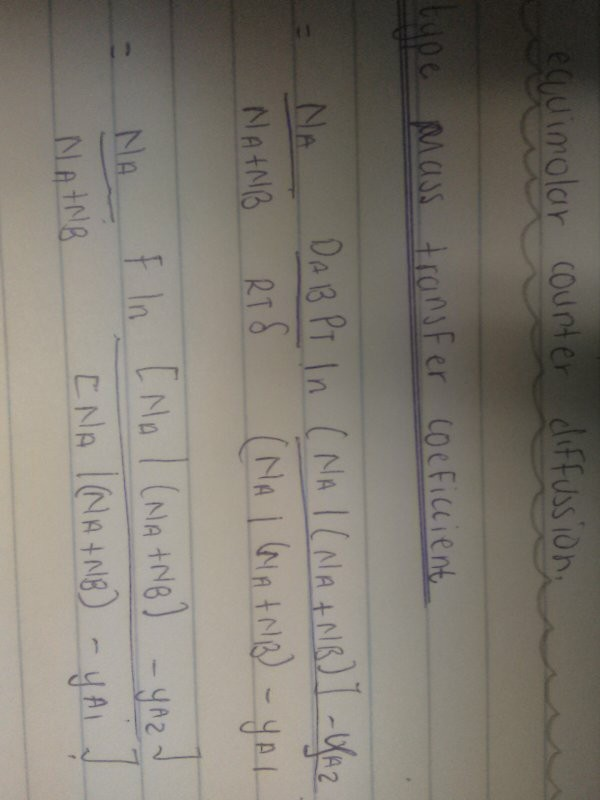 equimolar counter diffussion.
type mass transfer coefficient
= NA DAB PT ln (NA / (NA + NB)] - yA2
NA+NB RTδ (NA / (NA + NB) - yA1
= NA F ln [NA / (NA + NB) - yA2]
NA+NB [NA / (NA+NB) - yA1]